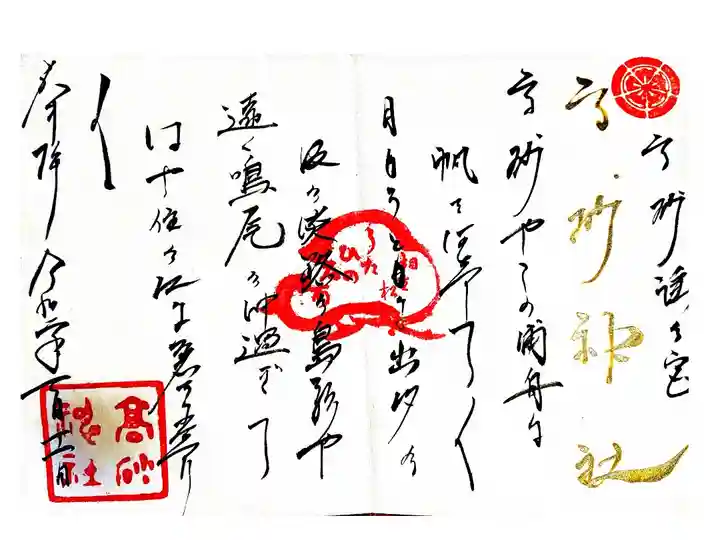 高砂 謡の宮
高砂神社
高砂やこの浦舟に
帆を上げて〱
月もろともに出汐の
波の淡路の島影や
遠く鳴尾の沖過ぎて
はや住の江に着にけり
〱
奉拝 令和 年 月十一日
うたひの
高砂神社